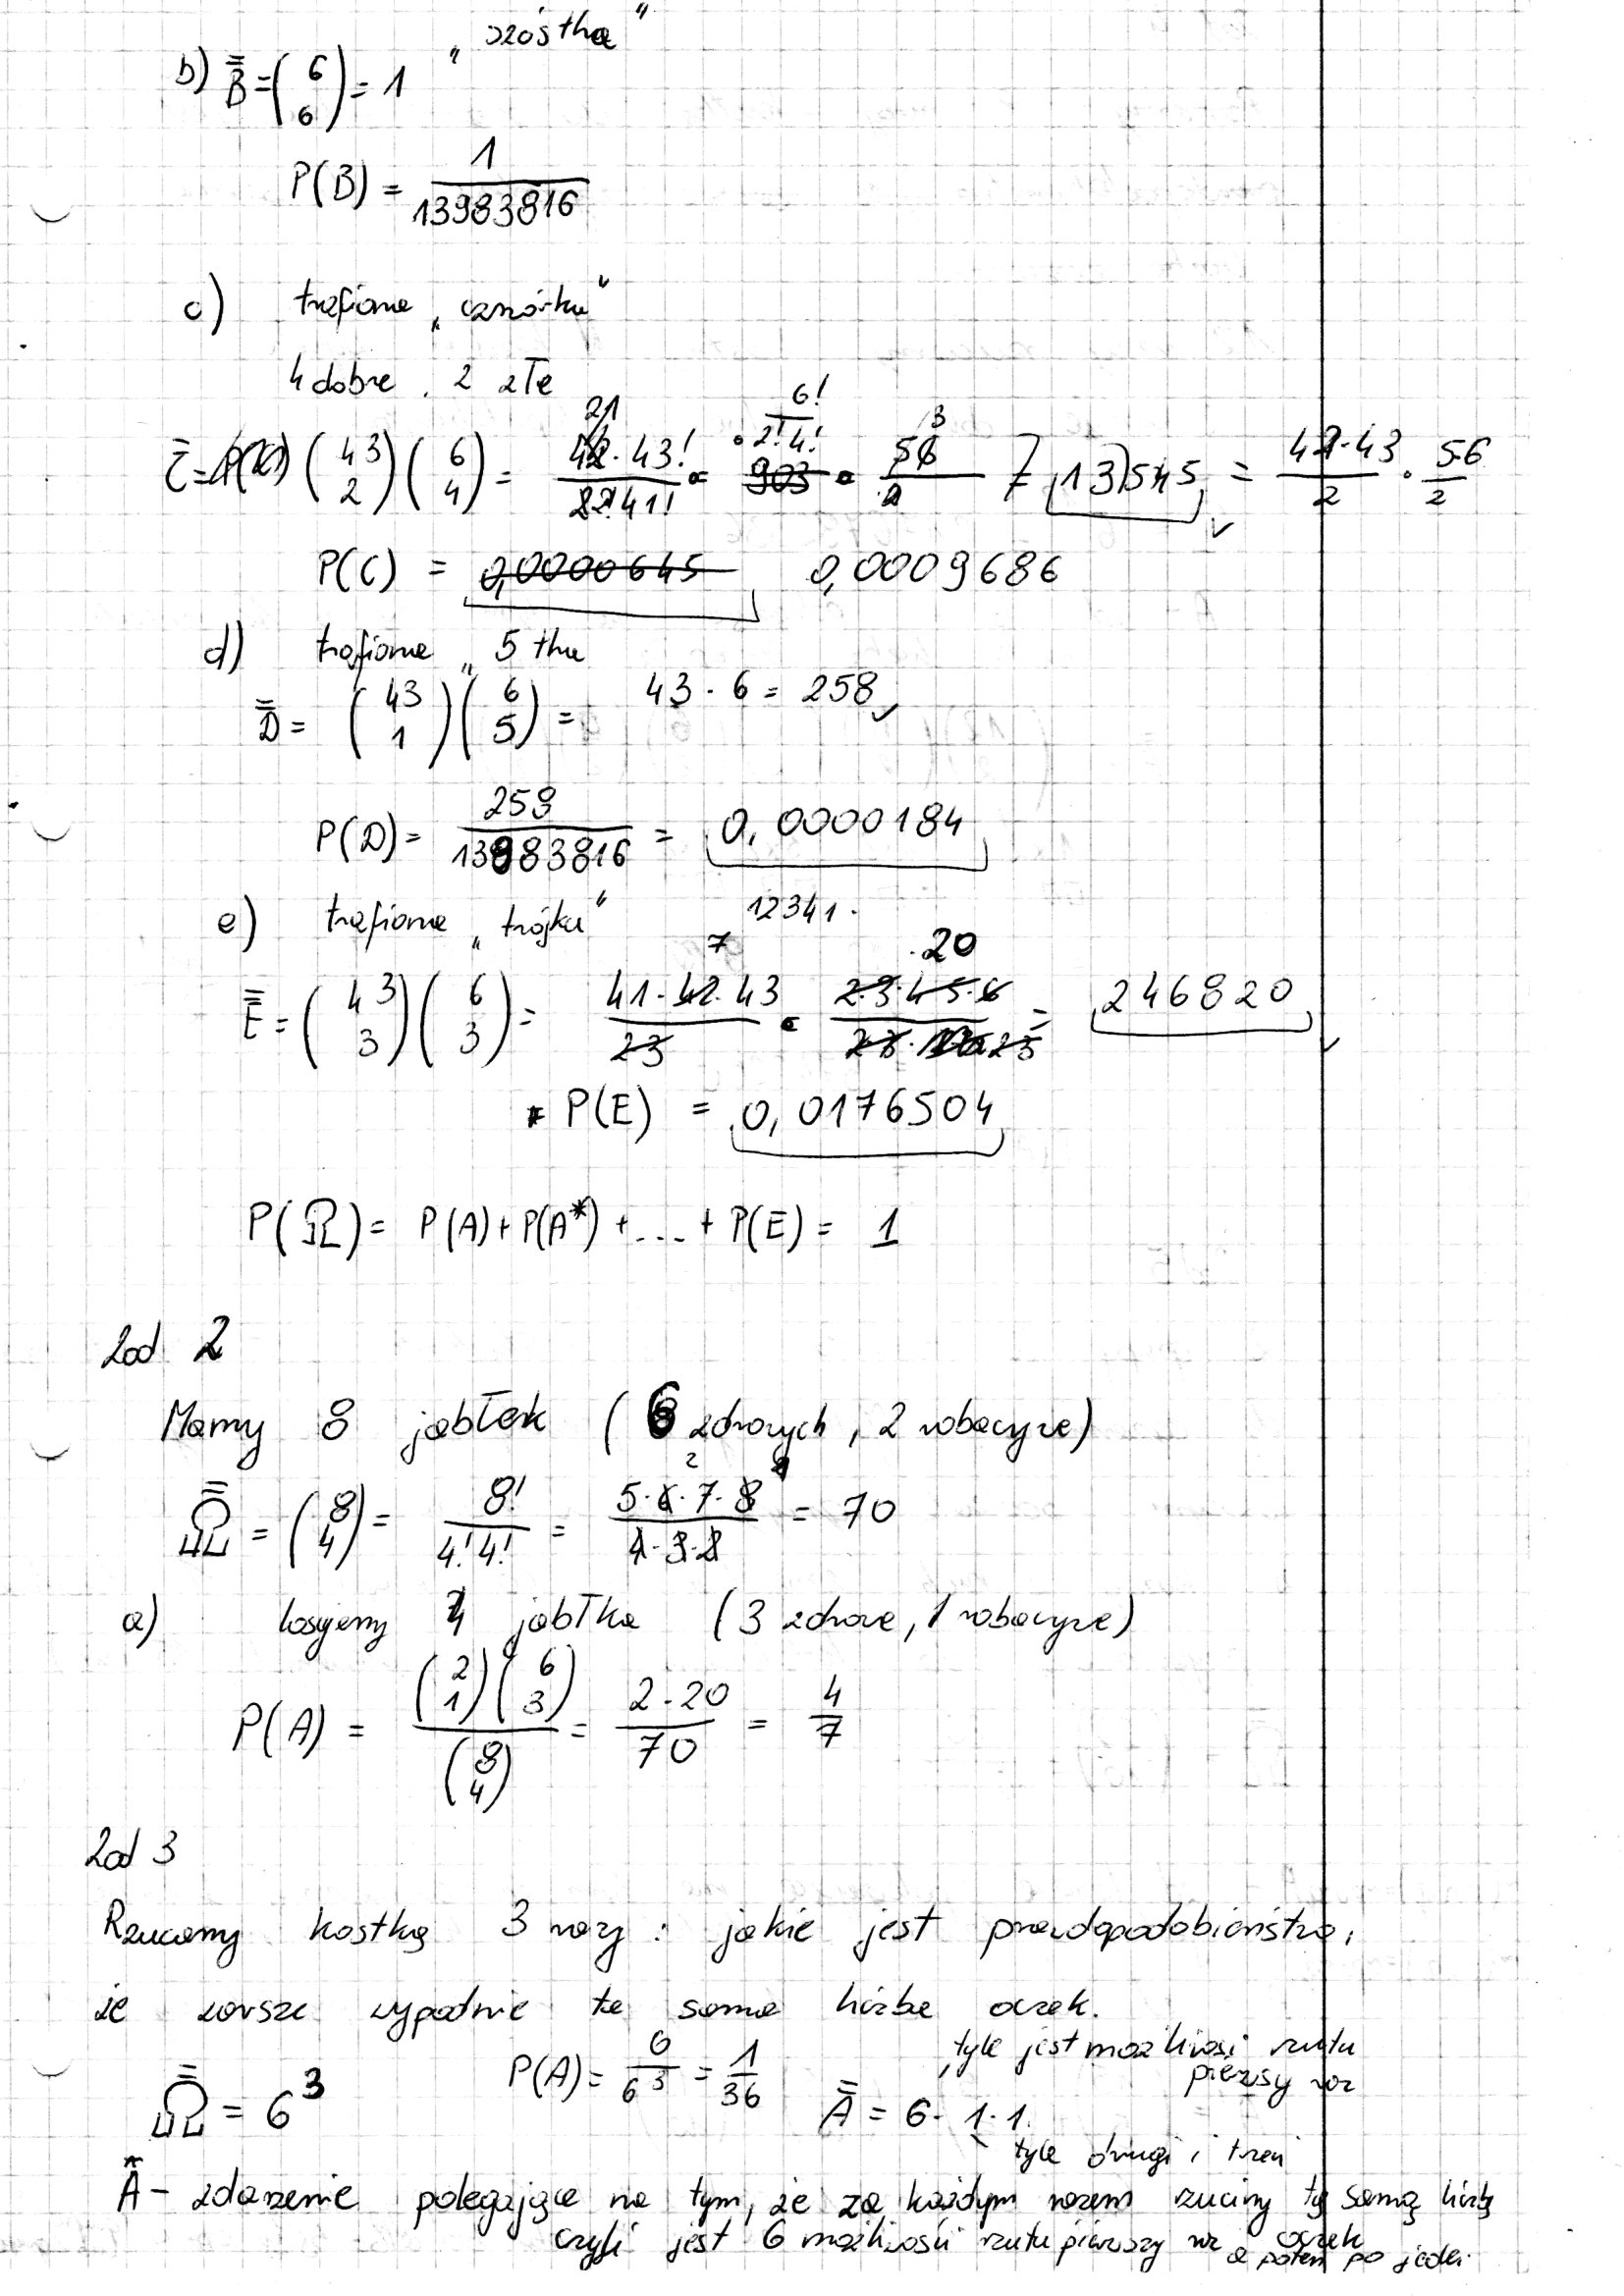 "szóstka"
b) B̿ = (6 6) = 1
P(B) = 1/13983816
c) trafiona „czwórka"
4 dobre, 2 złe
C̿ = (43 2)(6 4) = 42·43!/2!41! · 6!/2!4! 13545 = 42·43/2 · 5·6/2
P(C) = 0,0000645 0,0009686
d) trafiona „5 tka
D̿ = (43 1)(6 5) = 43·6 = 258
P(D) = 258/13983816 = 0,0000184
e) trafiona „trójka" 12341·
E̿ = (43 3)(6 3) = 41·42·43/2·3 · 2·3·4·5·6/2·3·2·3 = 246820
7 ·20
P(E) = 0,0176504
P(Ω) = P(A) + P(A*) + .... + P(E) = 1
Zad 2
Mamy 8 jabłek (6 zdrowych, 2 robaczywe)
Ω̿ = (8 4) = 8!/4!4! = 5·6·7·8/4·3·2 = 70
a) losujemy 4 jabłka (3 zdrowe, 1 robaczywe)
P(A) = (2 1)(6 3)/(8 4) = 2·20/70 = 4/7
Zad 3
Rzucamy kostką 3 razy : jakie jest prawdopodobieństwo,
że zawsze wypadnie ta sama liczba oczek.
Ω̿ = 6³ P(A) = 6/6³ = 1/36
tyle jest możliwości rzutu
pierwszy raz
A̿ = 6·1·1
tyle drugi i trzeci
A - zdarzenie polegające na tym, że za każdym razem rzucimy tą samą liczbę
oczek
czyli jest 6 możliwości rzutu pierwszy raz a potem po jednej